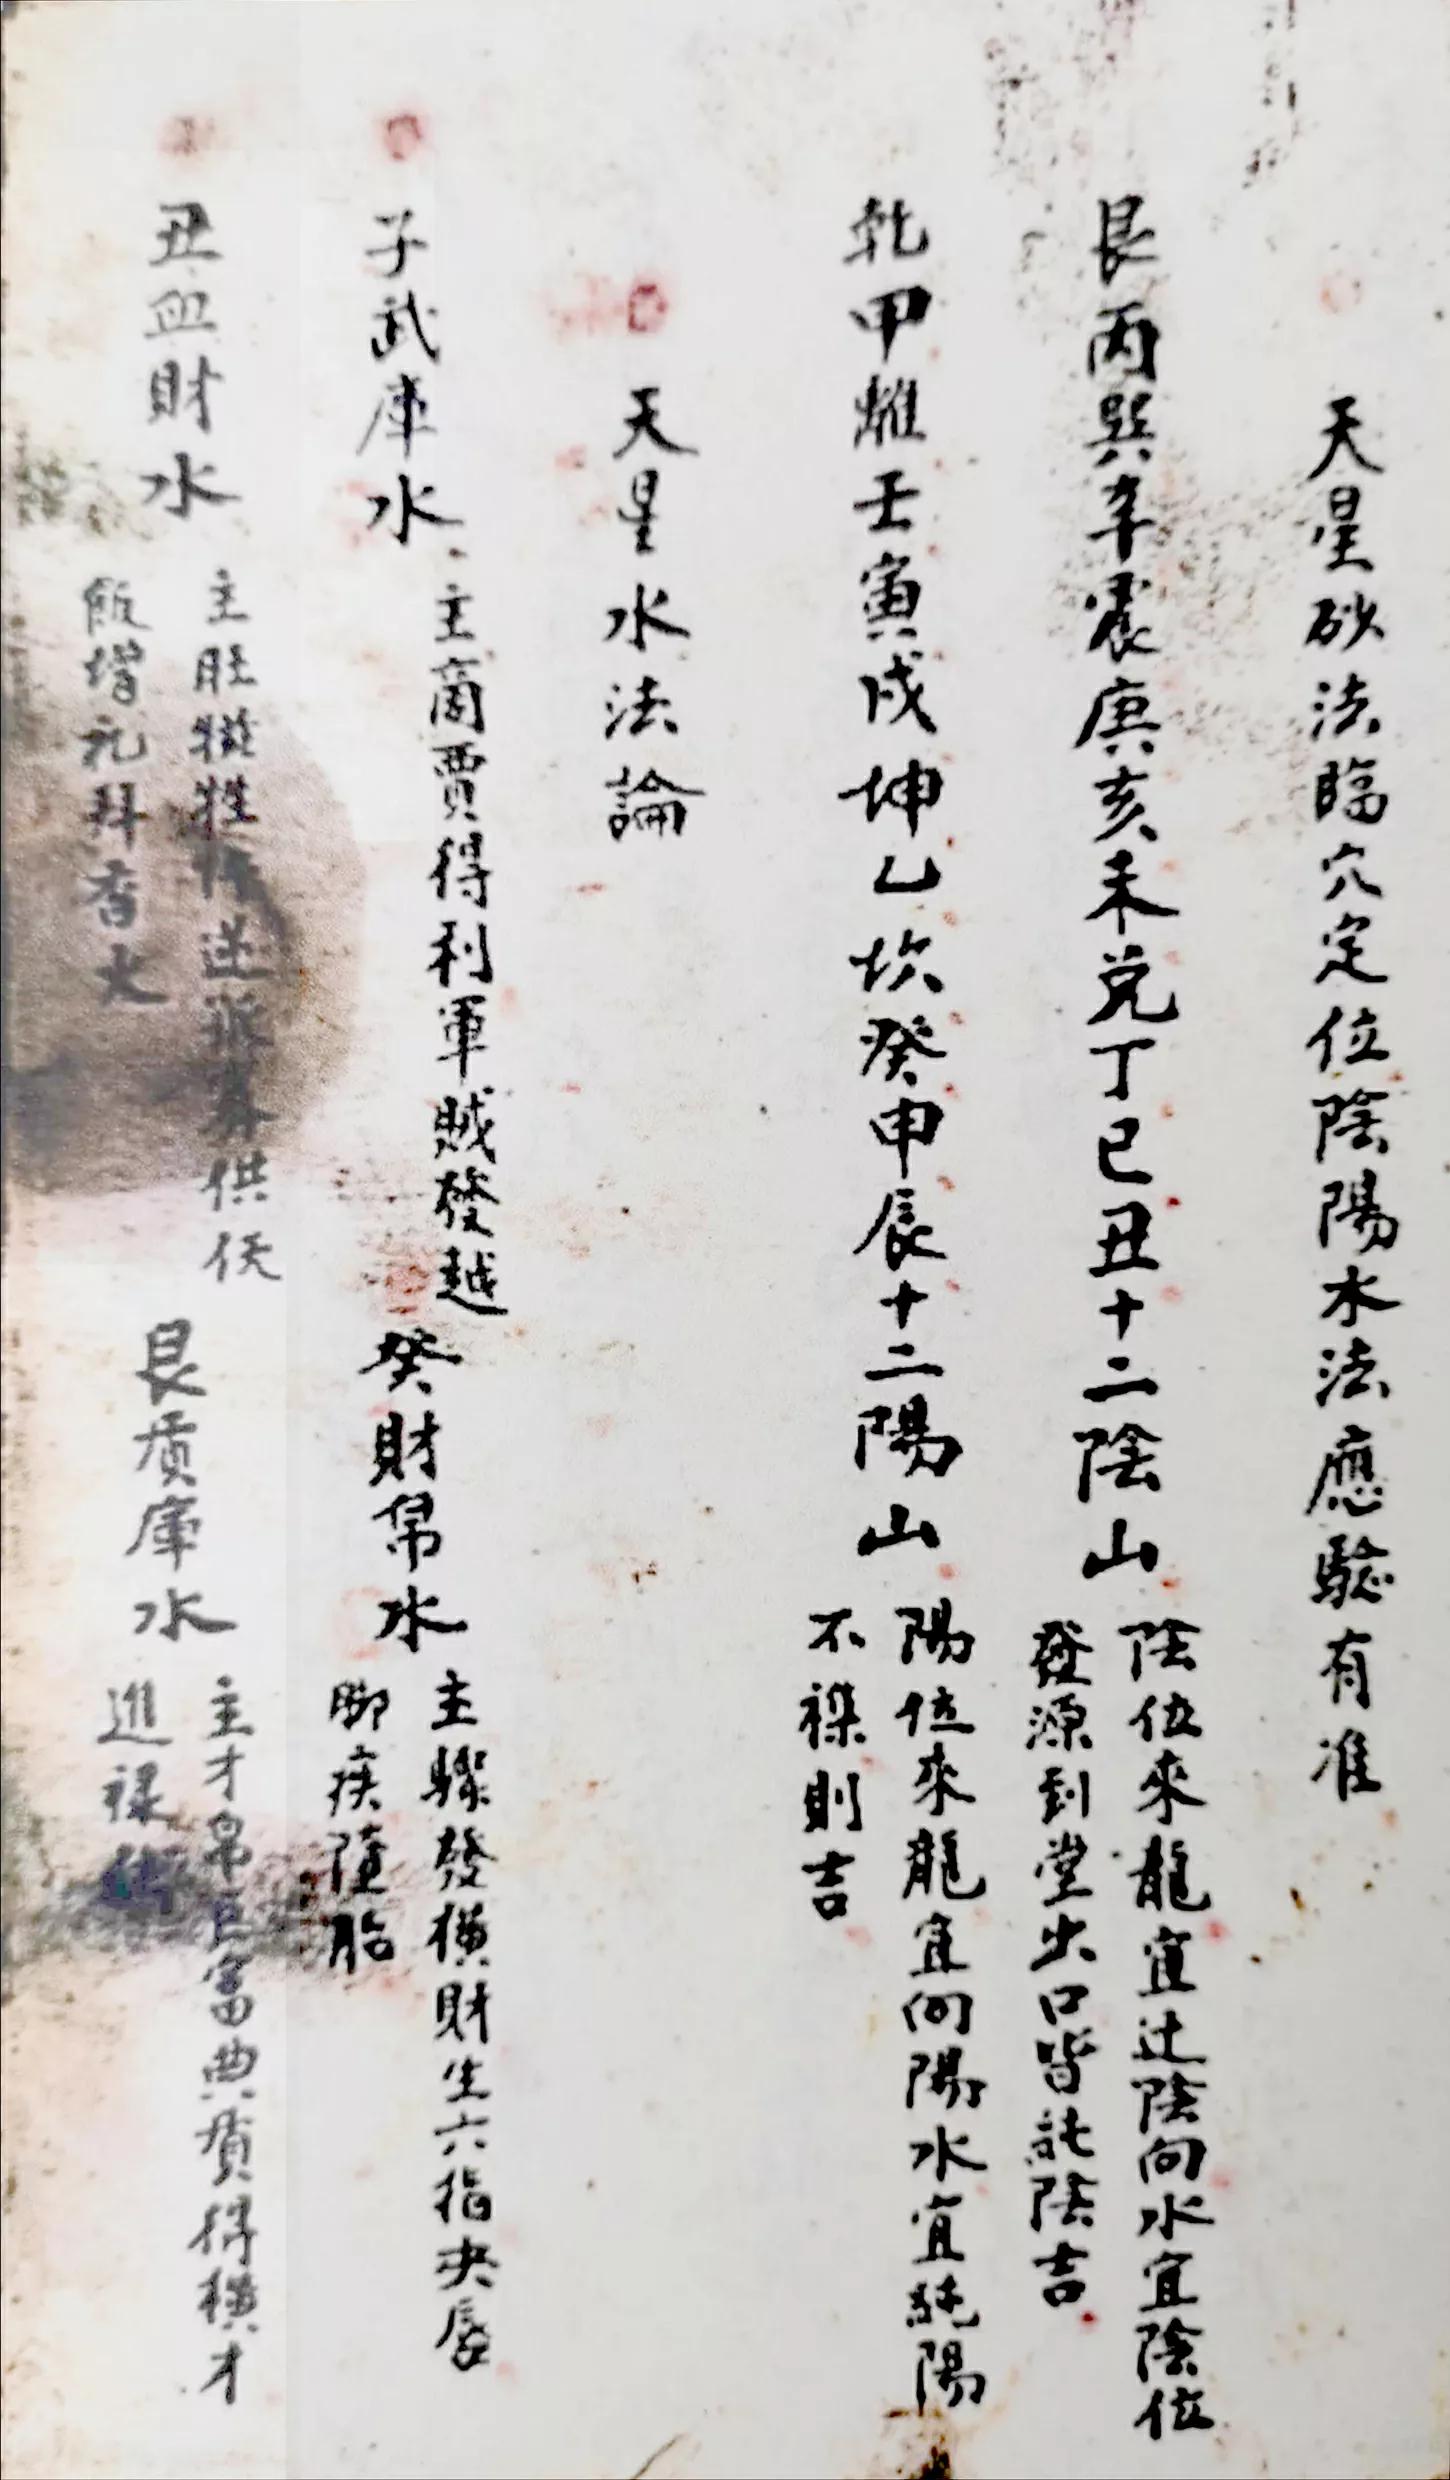 天星砂法臨穴定位陰陽水法應驗有准
艮丙巽辛震庚亥未兌丁巳丑十二陰山
陰位來龍宜辻陰向水宜陰位
發源到堂出口皆純陰吉
乾甲離壬寅戌坤乙坎癸申辰十二陽山
陽位來龍宜向陽水宜純陽
不襍則吉
天星水法論
子武庫水
主商賈得利軍賊發越
癸財帛水
主驟發橫財生六指夾唇
腳疾墮胎
丑血財水
主旺犠牲 逆 供仸
飯增礼拜香火
艮质庫水
主才帛巨富典质得橫才
進祿